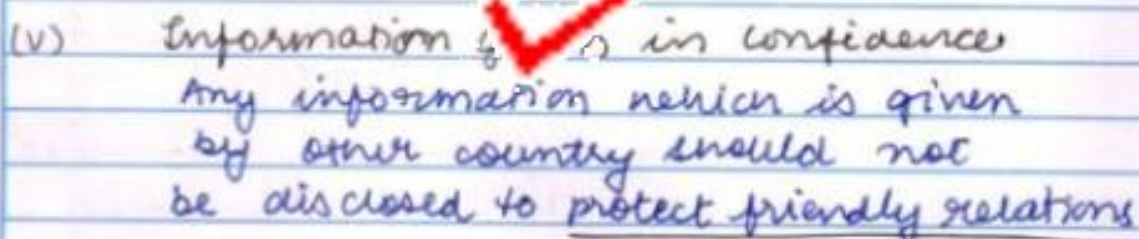 (v) Information in confidence
Any information which is given
by other country should not
be disclosed to protect friendly relations